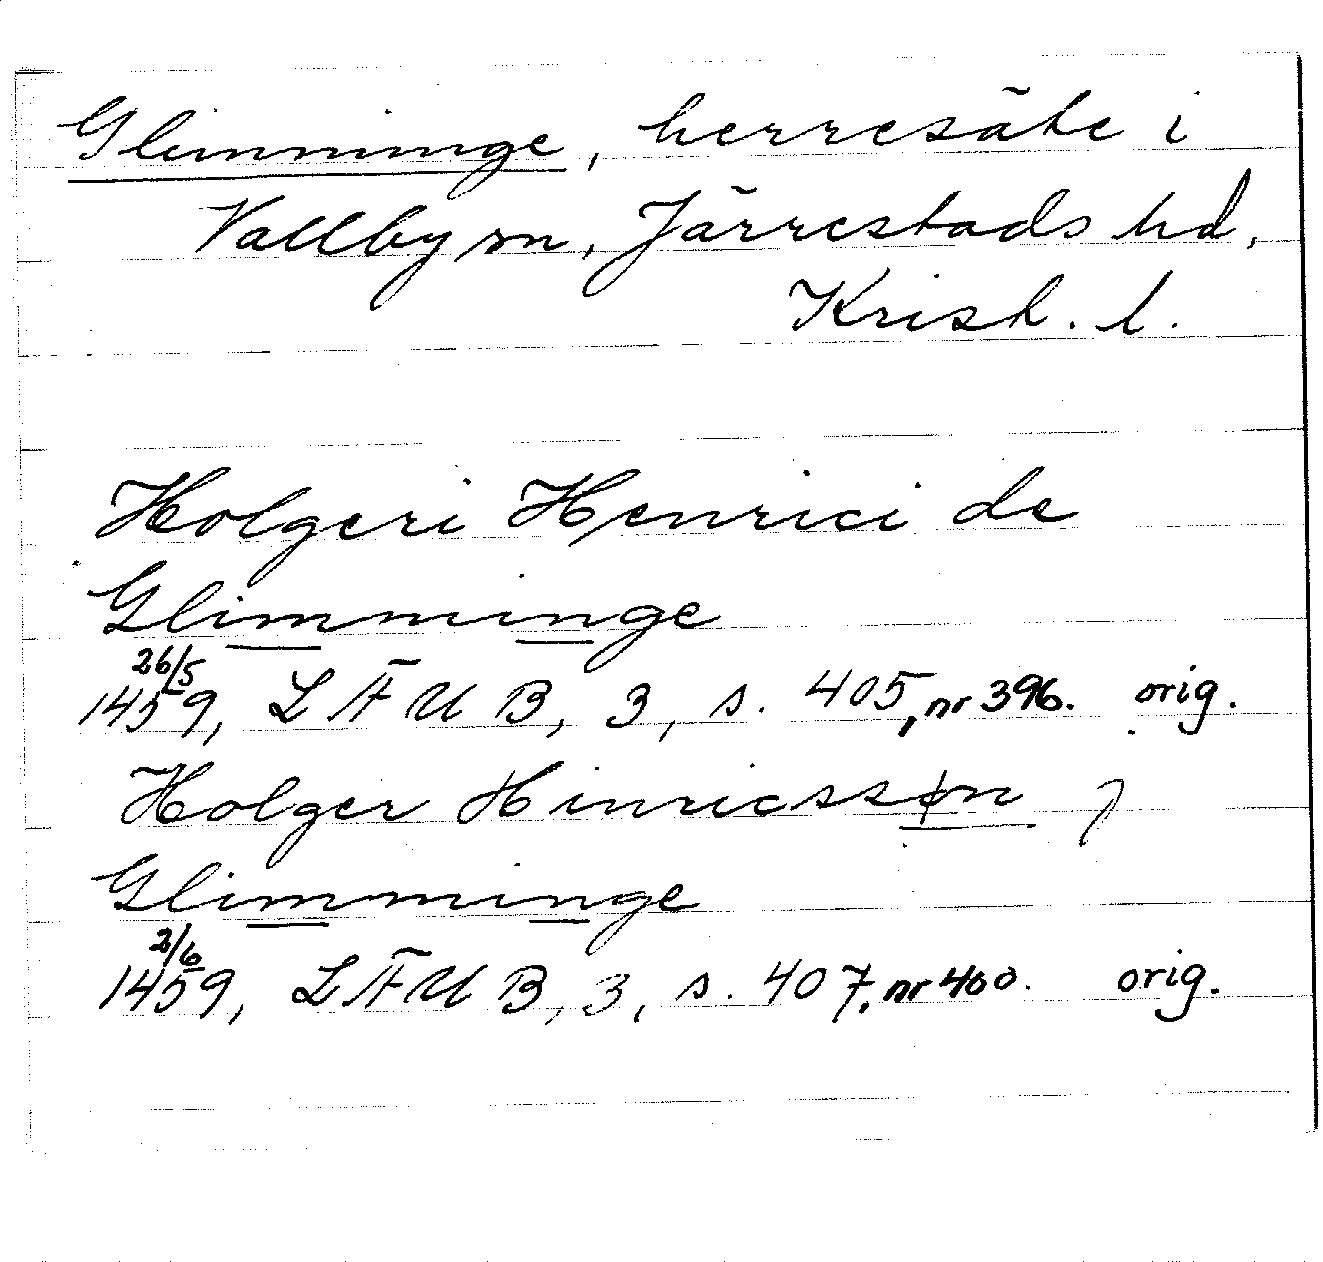 Glimminge, herresäte i
Vallby sn, Järrestads hd,
Krist. l.
Holgeri Henrici de
Glimminge
26/5
1459, LÄUB, 3, s. 405, nr 396. orig.
Holger Hinricssøn j
Glimminge
2/6
1459, LÄUB, 3, s. 407, nr 400. orig.